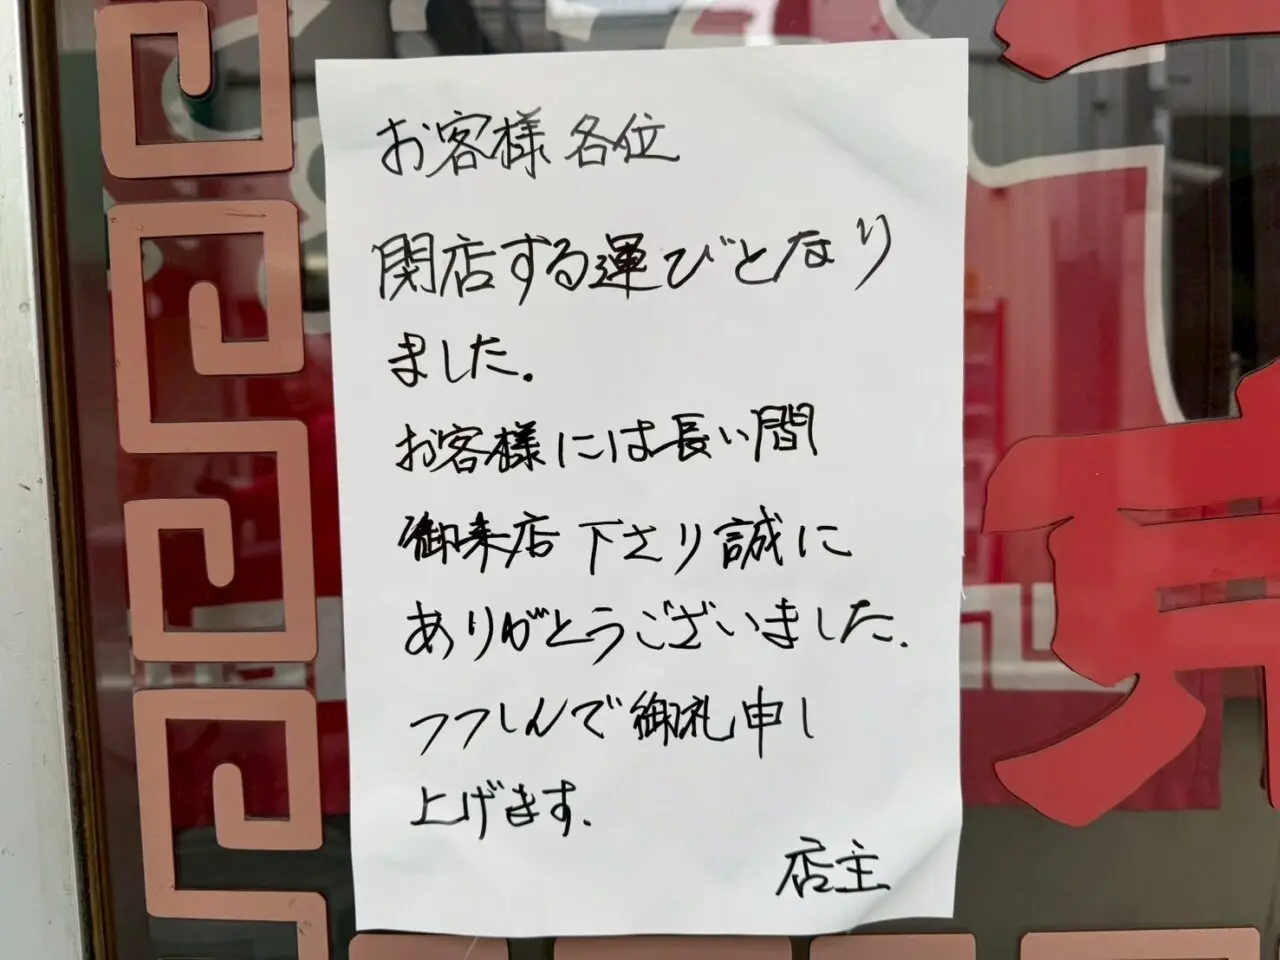 お客様各位
閉店する運びとなり
ました.
お客様には長い間
御来店下さり誠に
ありがとうございました.
つつしんで御礼申し
上げます.
店主